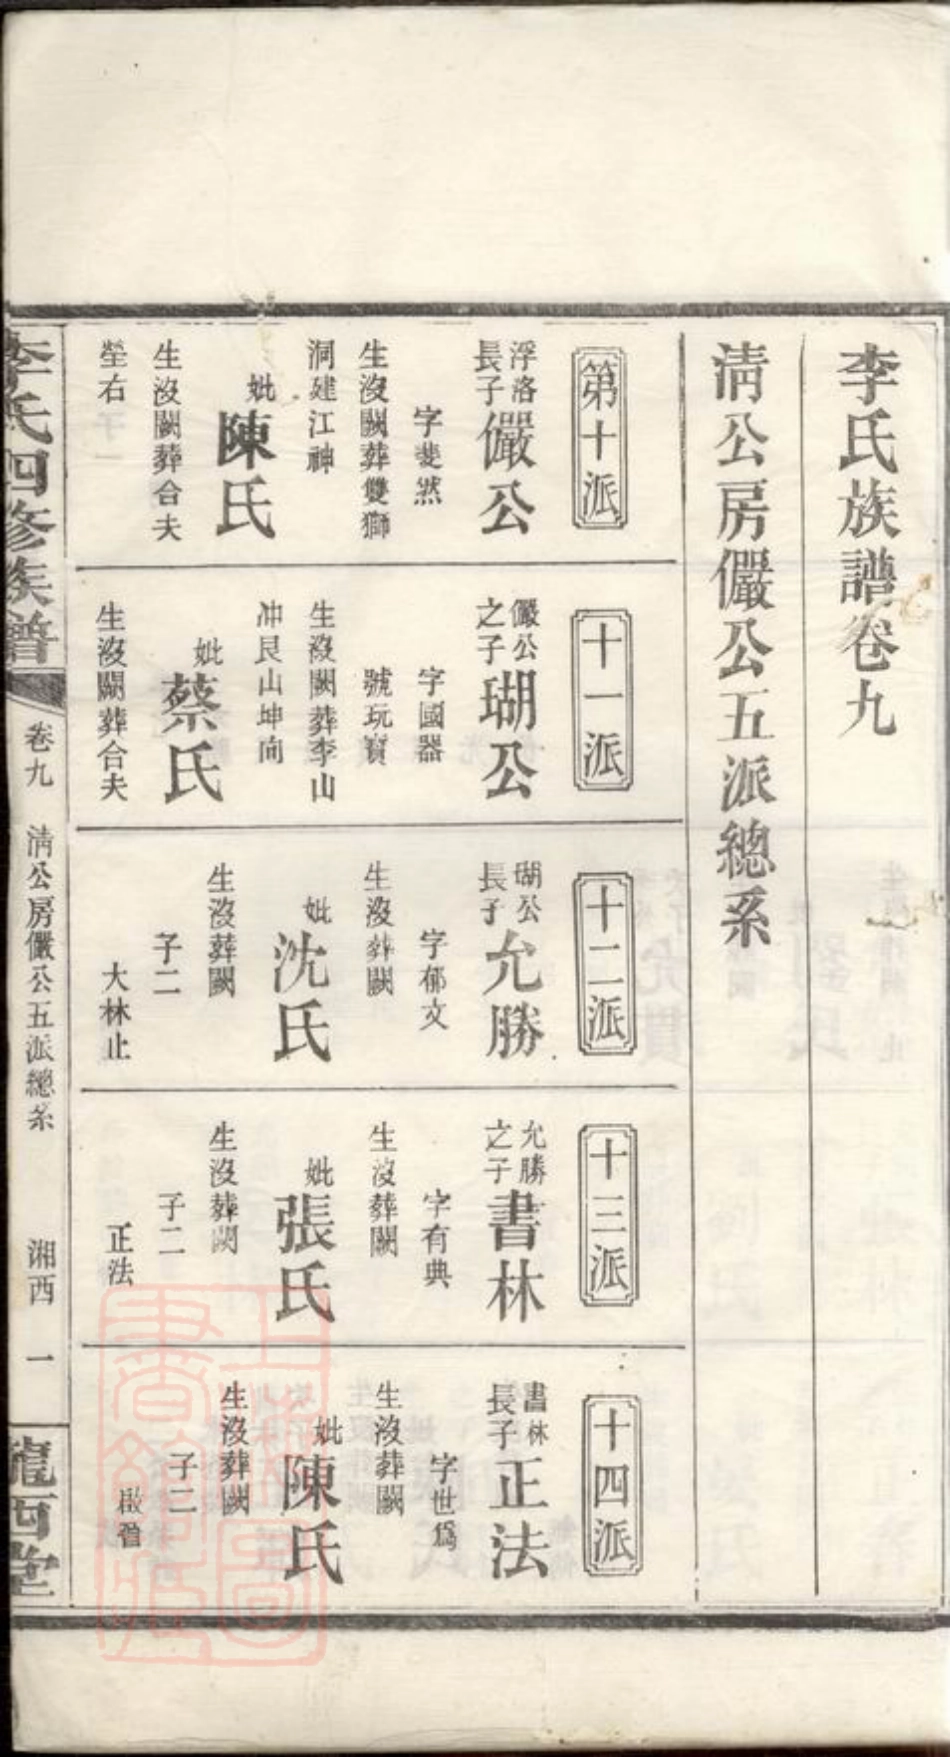 李氏族譜卷九
淸公房儼公五派總系
第十派
浮洛
長子
儼公
字斐然
生沒闕葬雙獅
洞建江神
妣
陳氏
生沒闕葬合夫
塋右
十一派
儼公
之子
瑚公
字國器
號玩寶
生沒闕葬李山
冲艮山坤向
妣
蔡氏
生沒闕葬合夫
十二派
瑚公
長子
允勝
字郁文
生沒葬闕
妣
沈氏
生沒葬闕
子二
大林止
十三派
允勝
之子
書林
字有典
生沒葬闕
妣
張氏
生沒葬闕
子二
正法
十四派
書林
長子
正法
字世爲
生沒葬闕
妣
陳氏
生沒葬闕
子二
啟
李氏四修族譜
卷九
淸公房儼公五派總系
湘西
一
隴西堂
上海圖書館藏